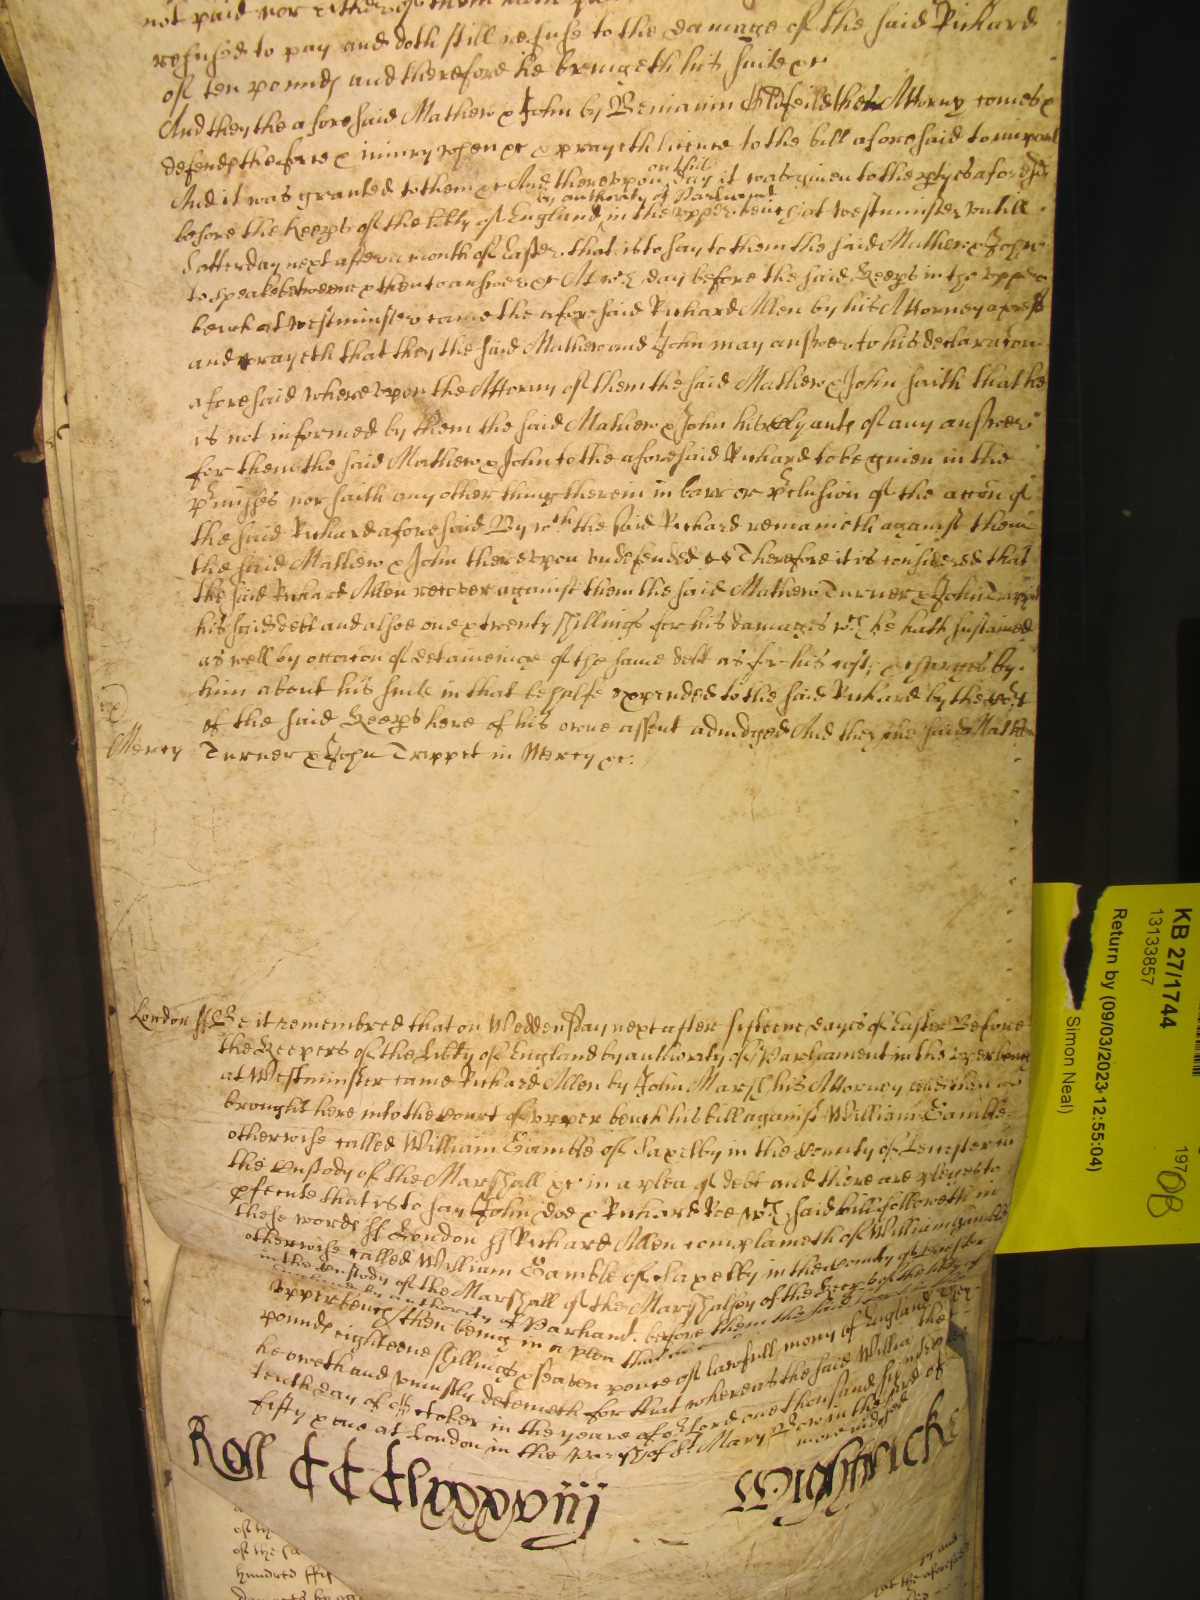 refused to pay and doth still refuse to the damage of the said Richard
of ten pounds and therefore he bringeth his suite &c
And they the aforesaid Mathew & John by Beniamin their Attorny comes &
defends the force & iniury when &c & prayeth licence to the bill aforesaid to imparl
And it was granted to them &c And thereupon on this day it was giuen to the ptyes aforesaid
before the Keeps of the libty of England by authority of Parliament in the upper bench at Westminster untill
Satterday next after a month of Easter that is to say to them the said Mathew & John
to speake betweene & then to answer &c At wch day before the said Keeps in the upper
bench at Westminster came the aforesaid Richard Allen by his Attorney aforesd
and prayeth that they the said Mathew and John may answer to his declaracon
aforesaid whereupon the Attorny of them the said Mathew & John saith that he
is not informed by them the said Mathew & John his clyants of any answer
for them the said Mathew & John to the aforesaid Richard to be giuen in the
pmisses nor saith any other thing therein in barr or pclusion of the accon of
the said Richard aforesaid By wch the said Richard remaineth against them
the said Mathew & John thereupon undefended &c Therefore it is considered that
the said Richard Allen recover against them the said Mathew Turner & John Trippet
his said debt and alsoe one & twenty shillings for his damages wch he hath sustained
as well by occacion of detaineinge of the same debt as for his costs & charges by
him about his suite in that behalfe expended to the said Richard by the Court
of the said Keeps here of his owne assent adiudged And they the said Mathew
Mercy Turner & John Trippet in Mercy &c
London ss Be it remembred that on Weddensday next after fifteene dayes of Easter Before
the Keepers of the libty of England by authority of Parliament in the upper bench
at Westminster came Richard Allen by John Marsh his Attorney and then
brought here into the Court of upper bench his bill against William Gamble
otherwise called William Gamble of Saxelby in the County of Leicester in
the custody of the Marshall &c in a plea of debt and there are pleges to
psecute that is to say John Doe & Richard Roe wch said bill followeth in
these words ss London ss Richard Allen complaineth of William Gamble
otherwise called William Gamble of Saxelby in the County of Leicester
in the custody of the Marshall of the Marshalsey of the Keeps of the libty of
England by authority of Parliamt. before them the said Keeps in the
upper bench then being in a plea that
pounds eighteene shillings & seaven pence of lawfull mony of England wch
he oweth and uniustly deteineth for that whereas the said William the
tenth day of October in the yeare of or Lord one thousand six hundred
fifty & one at London in the parish of St Mary Bow in the Ward of
Roll CCClxxxviij Wightwicke
of the
of the sa
hundred fift
and
at the aforesaid
KB 27/1744
13133857
Return by (09/03/2023 12:55:04)
Simon Neal)